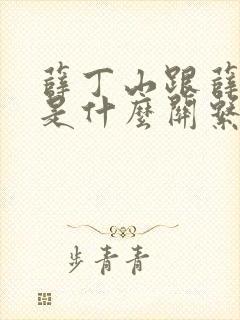 薛丁山跟薛
是什麼關繫
步青青